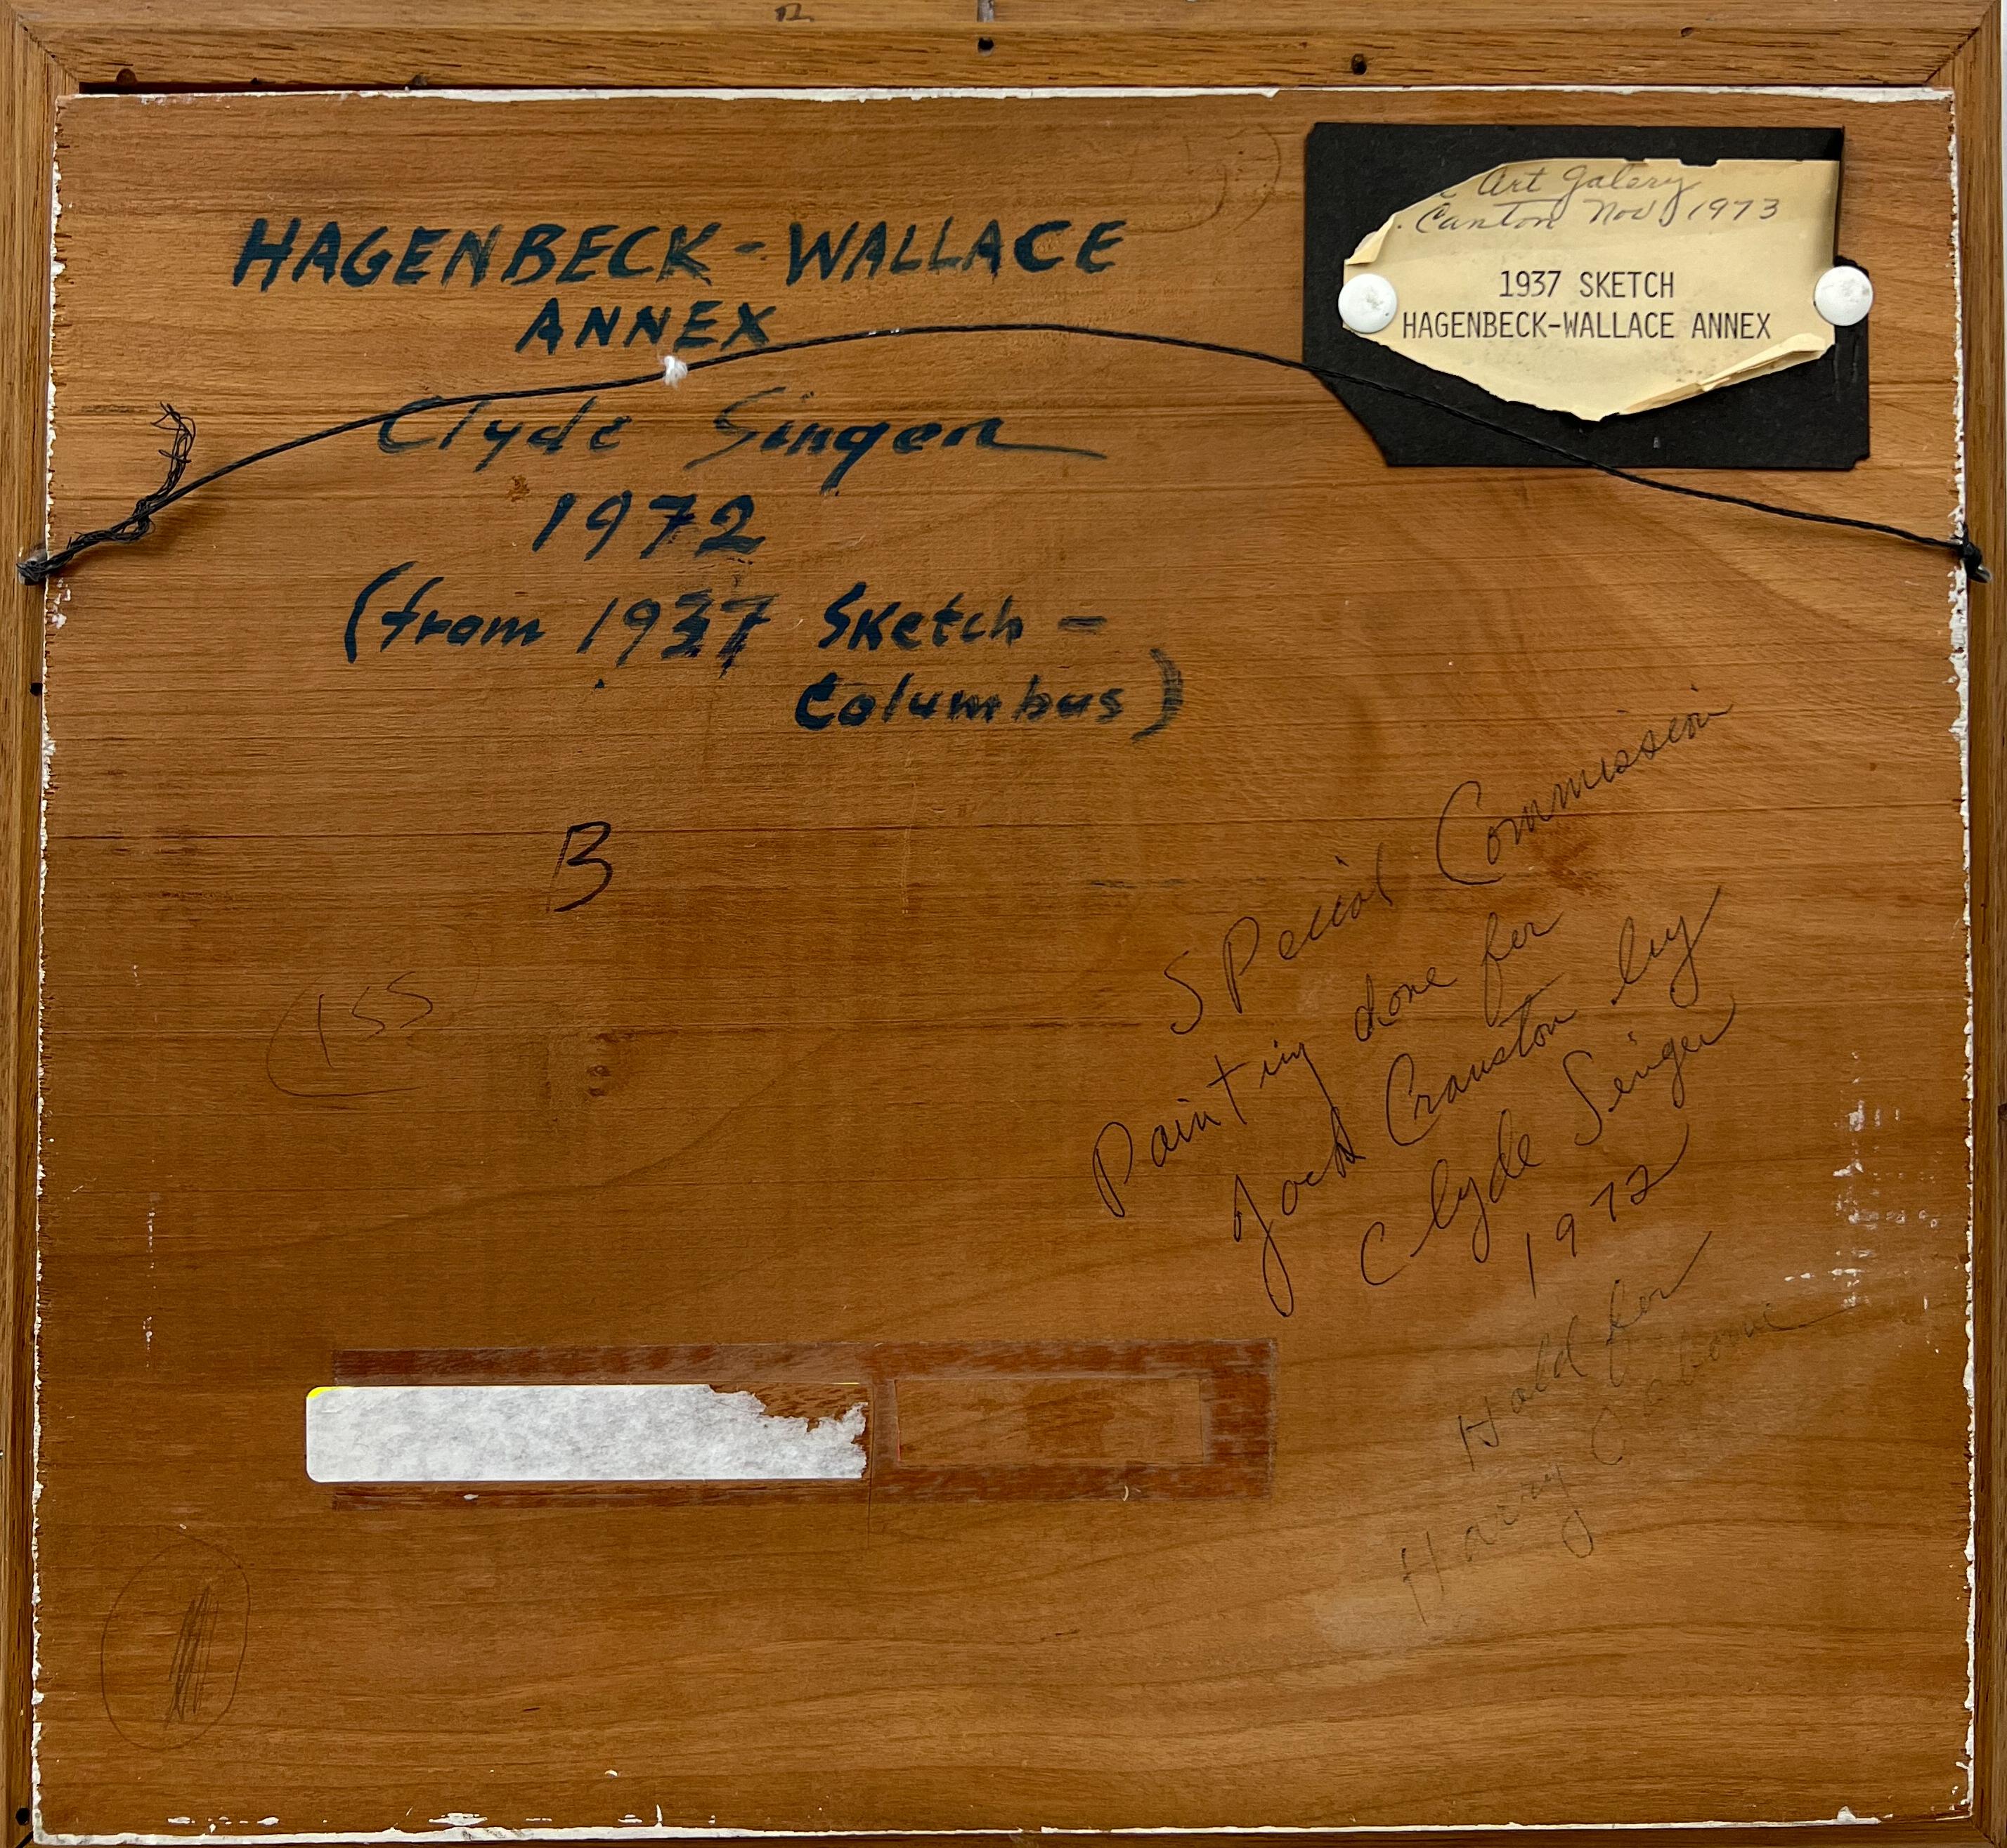 HAGENBECK-WALLACE
ANNEX
Clyde Singer
1972
(from 1937 Sketch -
Columbus)
Art Galery
Canton Nov 1973
1937 SKETCH
HAGENBECK-WALLACE ANNEX
B
155
Special Commission
Painting done for
Jack Cranston by
Clyde Singer
1972
Hold for
Harry